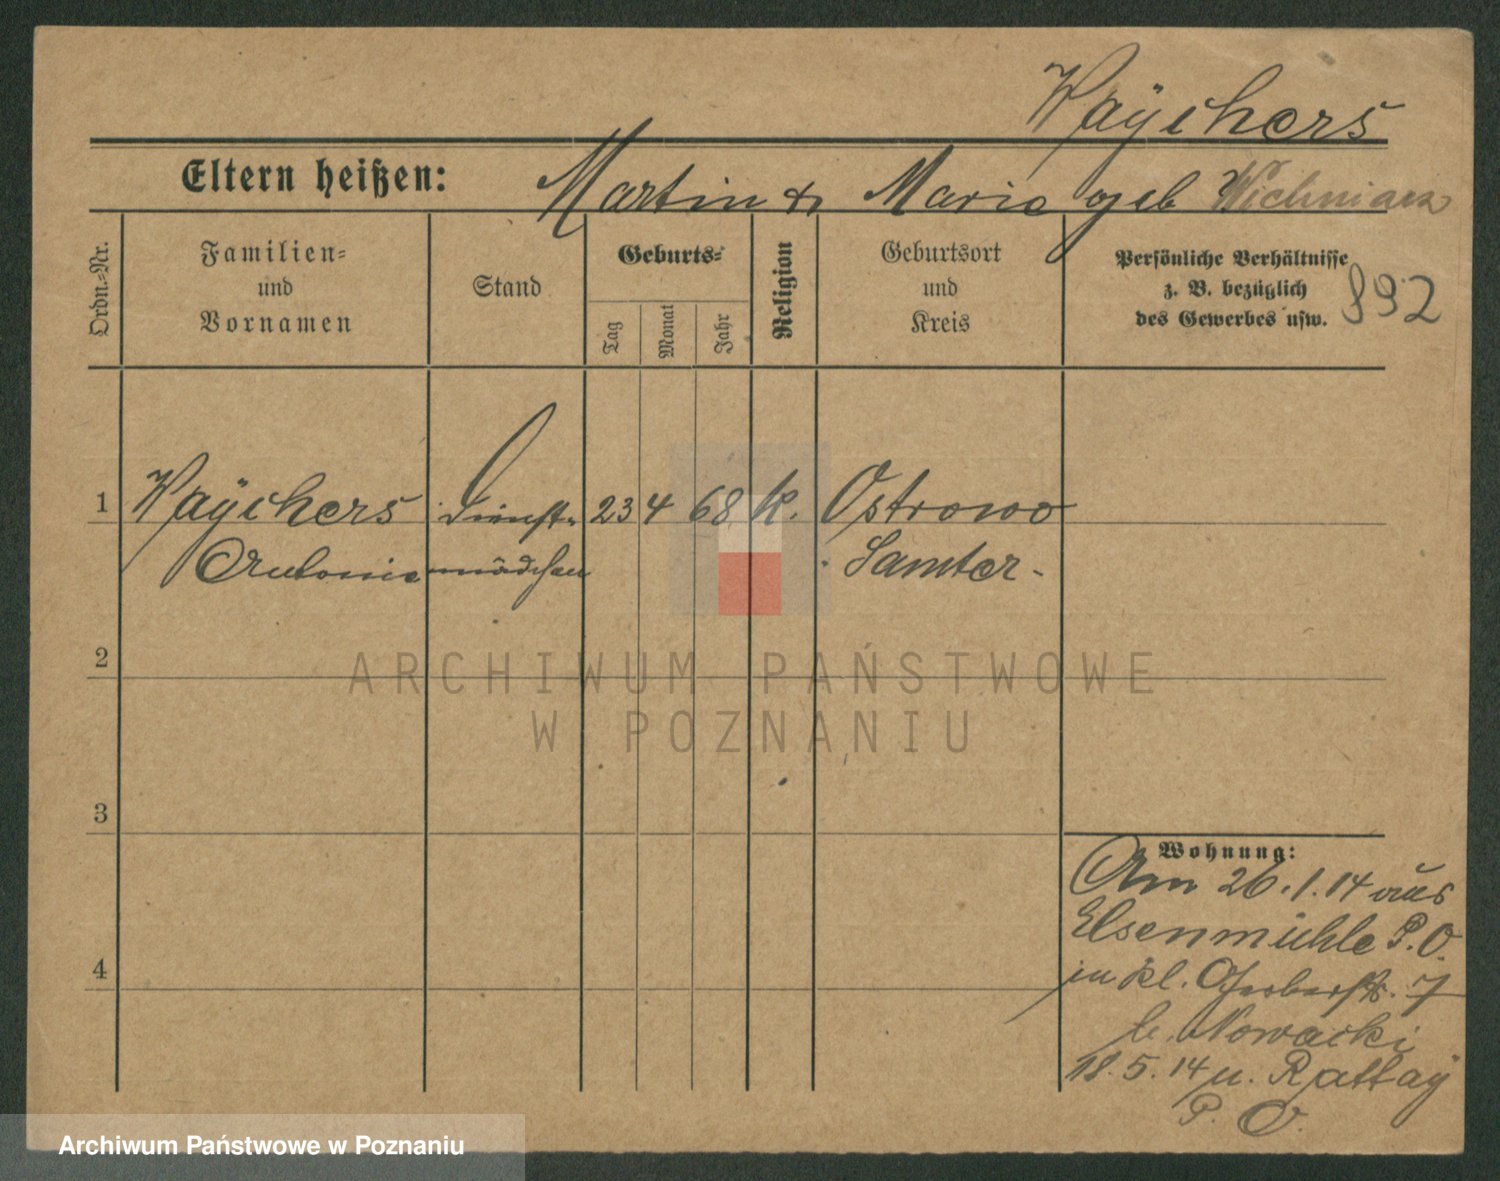 Waÿchers
Eltern heißen: Martin & Marie geb Wichniarz
Ordn.-Nr.
Familien-
und
Vornamen
Stand
Geburts-
Tag
Monat
Jahr
Religion
Geburtsort
und
Kreis
Persönliche Verhältnisse
z. B. bezüglich
des Gewerbes usw.
892
1 Waÿchers Dienst- 23 4 68 k. Ostrowo
Antonie mädchen Samter-
2
ARCHIWUM PAŃSTWOWE
W POZNANIU
3
Wohnung:
Am 26.1.14 aus
Elsenmühle P.O.
in kl. Gerberstr. 7
4
b. Nowacki
18.5.14 n. Rattaÿ
P. O.
Archiwum Państwowe w Poznaniu